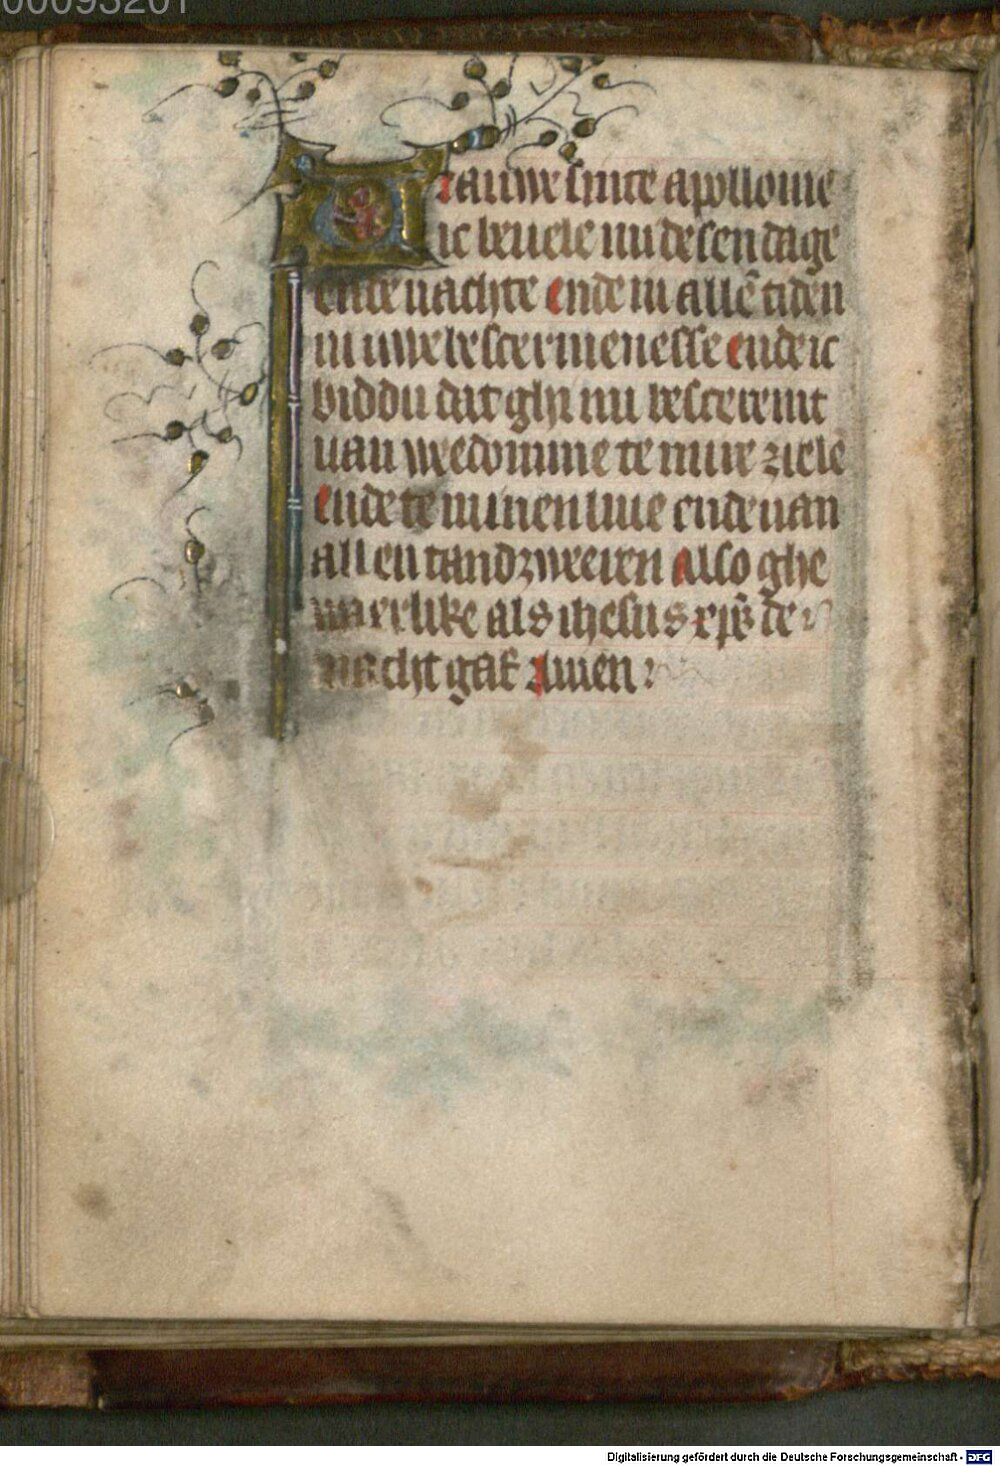 00093201
Vrauwe sinte apollonie
ic beuele mi desen dage
ende nachte ende in allē tiden
in uwe bescermenesse ende ic
biddu dat ghi mi besceremt
uan weedomme te mire ziele
ende te minen liue ende uan
allen tandzweeren also ghe
waerlike als ihesus xp̄s de
macht gaf amen
Digitalisierung gefördert durch die Deutsche Forschungsgemeinschaft - DFG